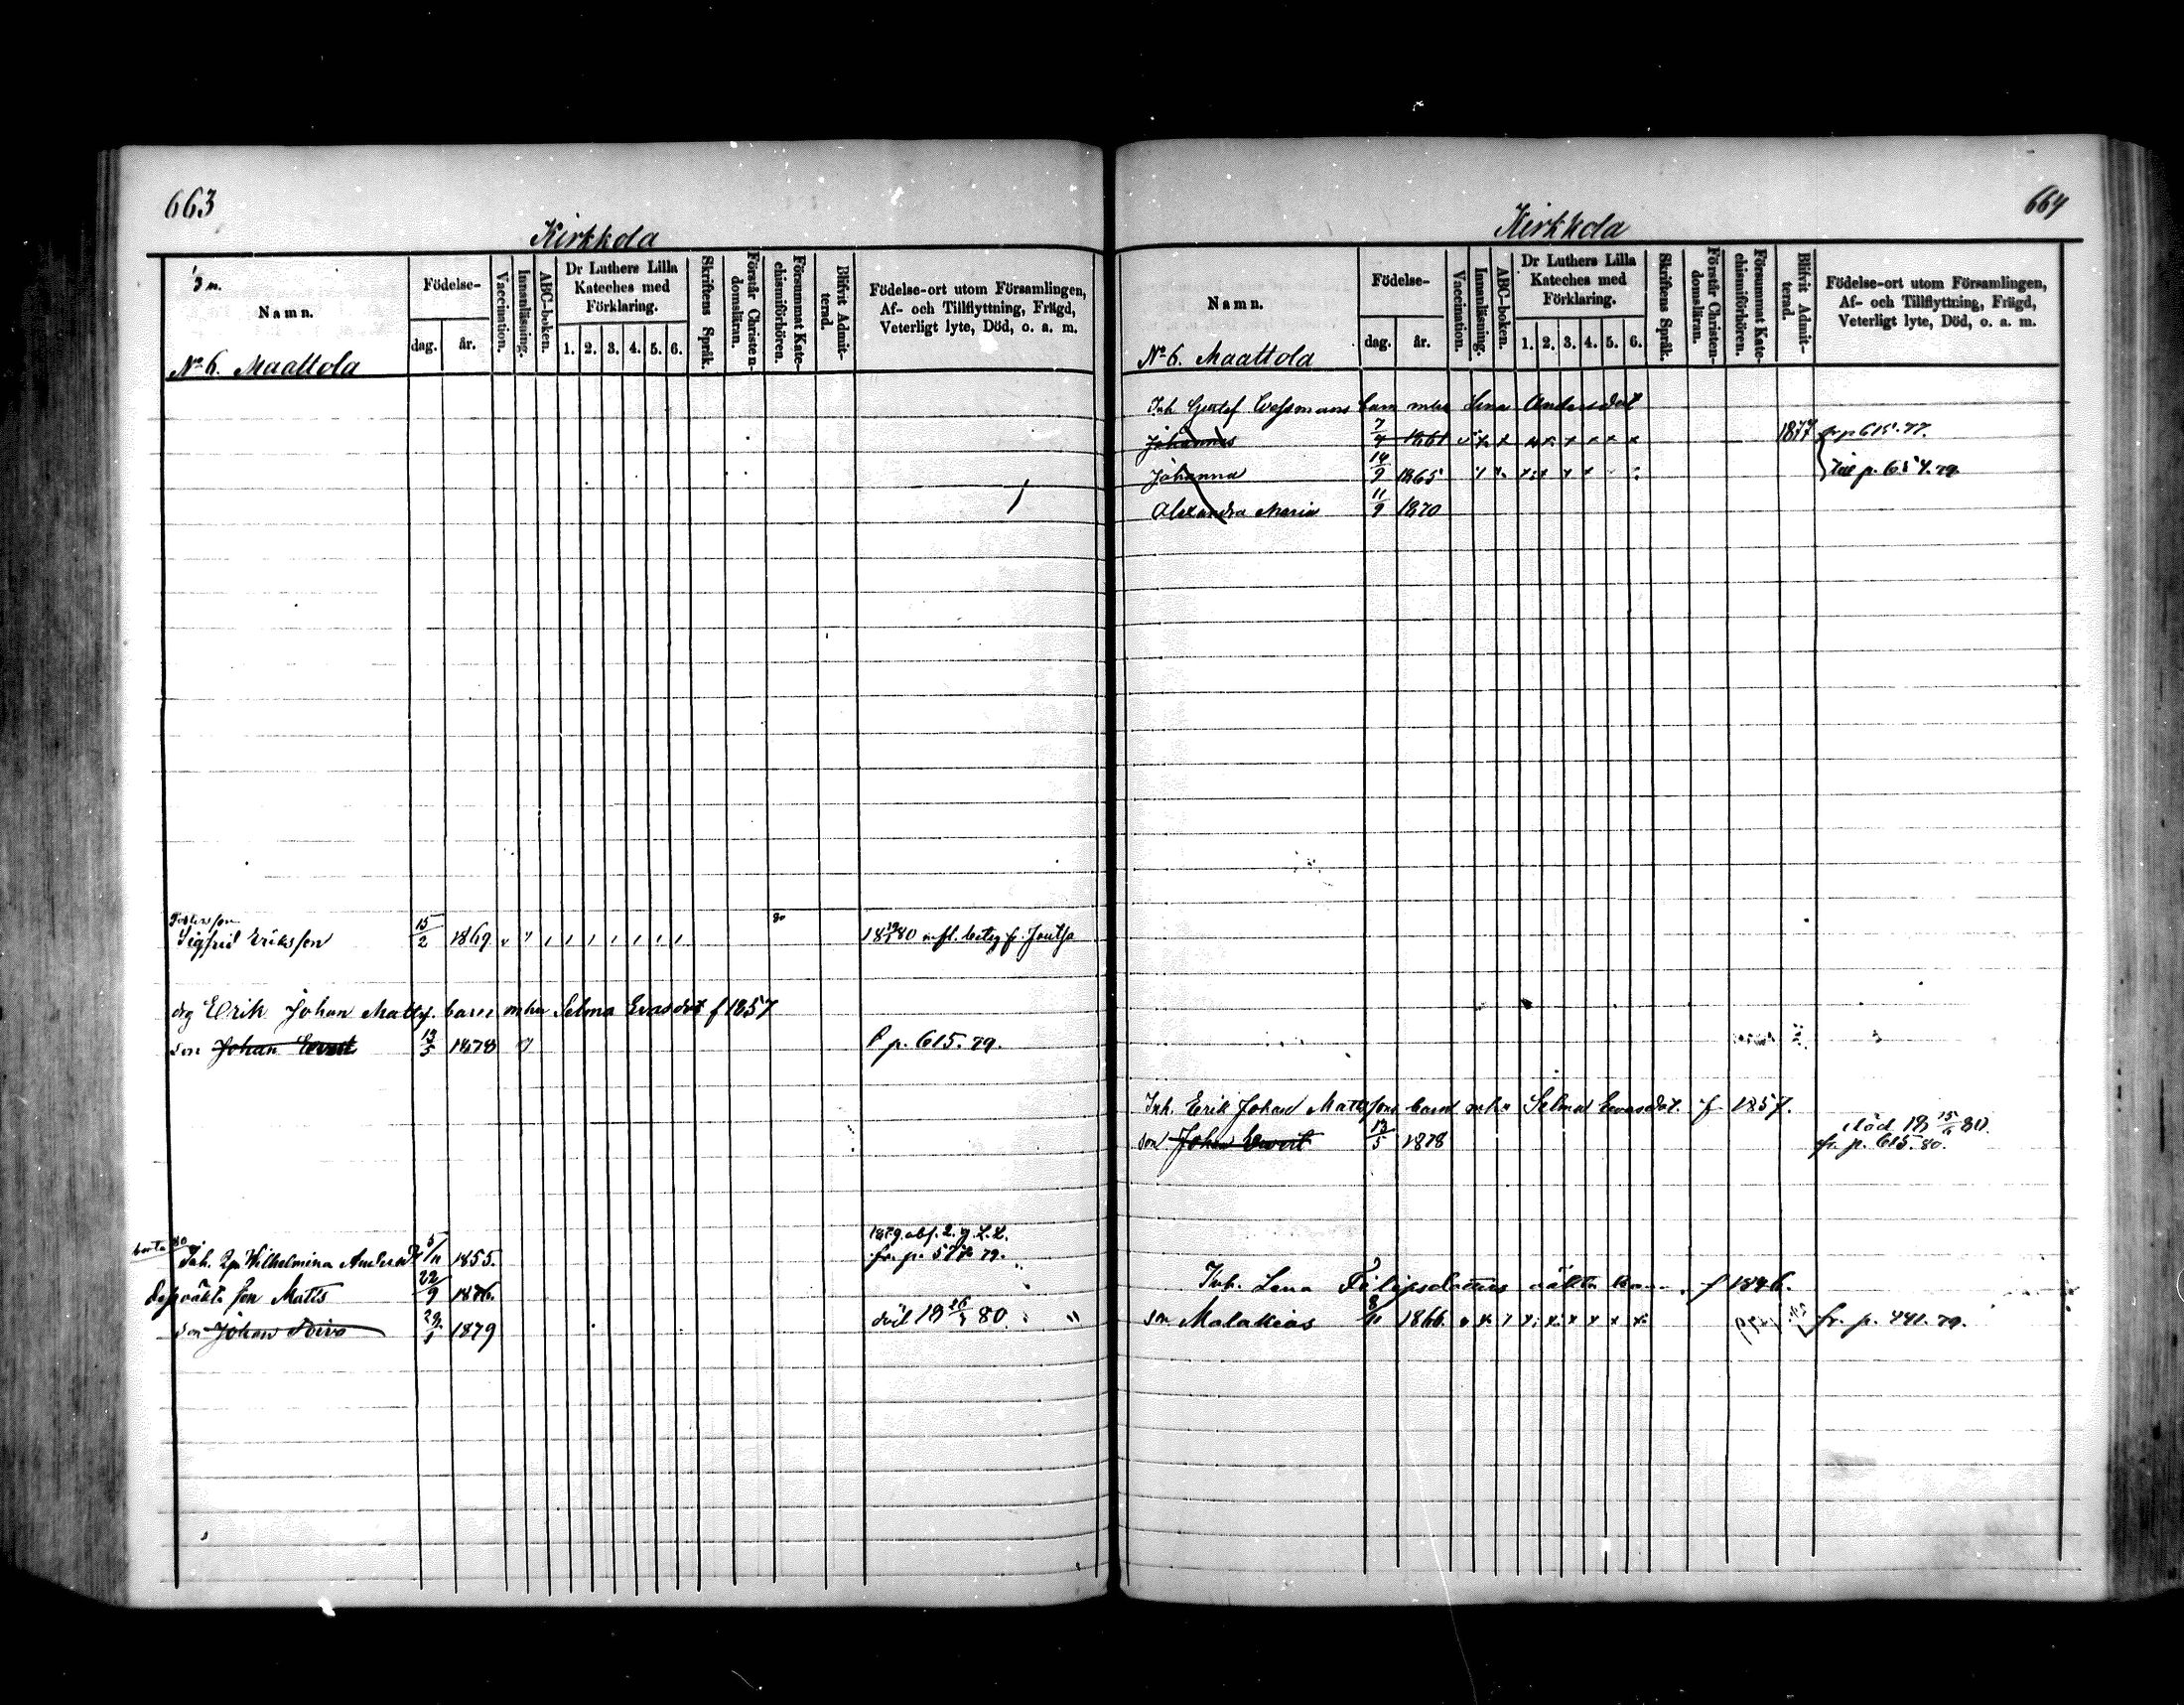 663
Kirkkola
Namn.
Födelse-
dag. år.
Vaccination.
Innanläsning.
ABC-boken.
Dr Luthers Lilla Kateches med Förklaring.
1. 2. 3. 4. 5. 6.
Skriftens Språk.
Förstår Christendomsläran.
Försummat Katechismiförhören.
Blifvit Admitterad.
Födelse-ort utom Församlingen, Af- och Tillflyttning, Frägd, Veterligt lyte, Död, o. a. m.
No 6. Maattola
Sigfrid Eriksson 15/2 1869
drg Erik Johan Matts. barn m hu Selma Evasdot f 1857
son Johan Evert 13/5 1878 p. 615. 79.
Inh. Wilhelmina Anders 5/11 1855. fr. p. 79.
son Matts 22/9 1876.
son Johan 1879 80.
664
Kirkkola
Namn.
Födelse-
dag. år.
Vaccination.
Innanläsning.
ABC-boken.
Dr Luthers Lilla Kateches med Förklaring.
1. 2. 3. 4. 5. 6.
Skriftens Språk.
Förstår Christendomsläran.
Försummat Katechismiförhören.
Blifvit Admitterad.
Födelse-ort utom Församlingen, Af- och Tillflyttning, Frägd, Veterligt lyte, Död, o. a. m.
No 6. Maattola
Inh Gustaf barn m hu Lena Andersdot
Johannes 7/4 1861 1877 fr p 615. 77.
Johanna 14/9 1865 p. 654. 79.
Alexandra Maria 11/9 1870
Inh. Erik Johan Mattssons barn m hu Selma Evasdot. f. 1857.
död 80.
son Johan Evert 13/5 1878 fr. p. 615. 80.
Inh. Lena Filipsdotters oäkta f 1846.
son Malakias 8/11 1866. fr. p. 441. 79.